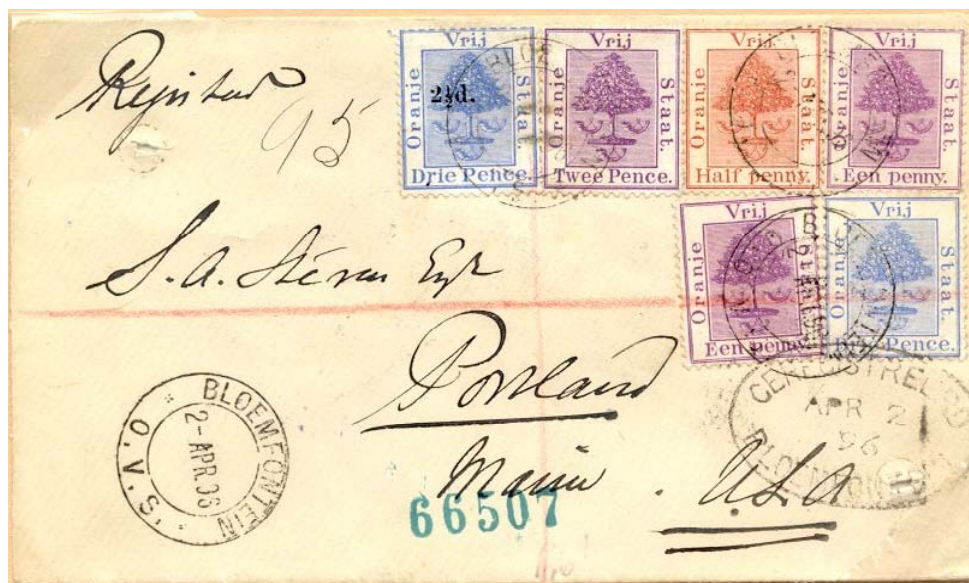 Registered
95
Vrij
Oranje
Staat.
2½d.
Drie Pence.
Vrij
Oranje
Staat.
Twee Pence.
Vrij
Oranje
Staat.
Half penny.
Vrij
Oranje
Staat.
Een penny.
Vrij
Oranje
Staat.
Een penny.
Vrij
Oranje
Staat.
Drie Pence.
S. A. Esqr
Portland
Maine . U.S.A
BLOEMFONTEIN
2-APR.96
O.V.S.
GEREGISTREERD
APR 2
96
BLOEMFONTEIN
66507